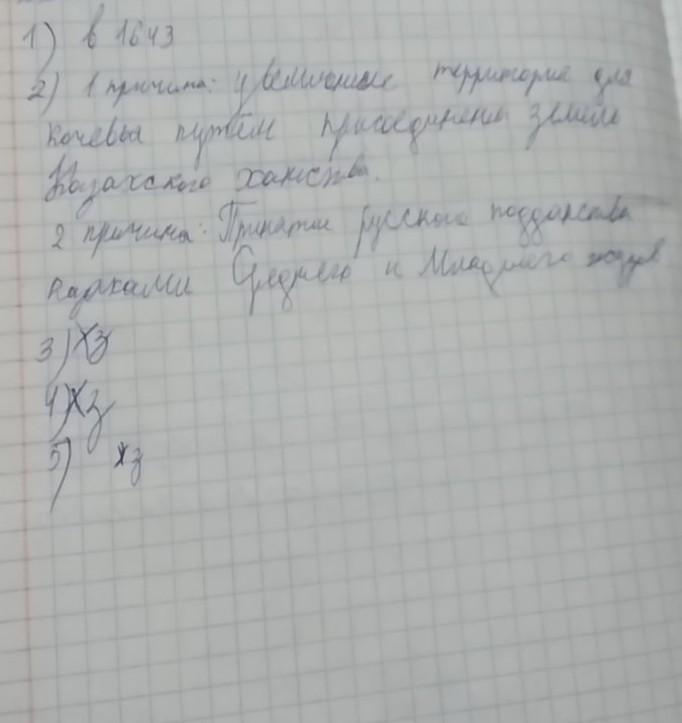 1) в 1643
2) 1 причина: увеличение территории для
кочевья путём присоединения земель
Казахского ханства.
2 причина: Принятие русского подданства
казахами Среднего и Младшего жузов
3) хз
4) хз
5) хз